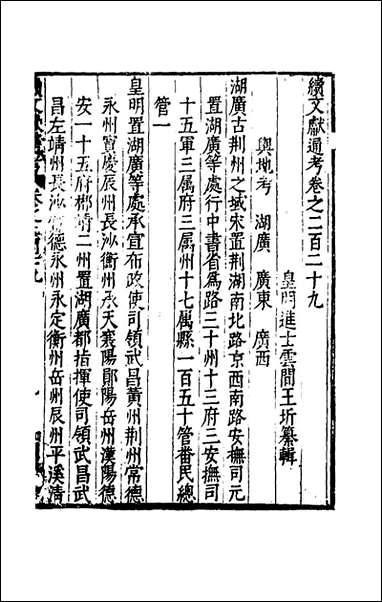 續文獻通考卷之二百二十九
皇明進士雲間王圻纂輯
輿地考 湖廣 廣東 廣西
湖廣古荆州之域宋置荆湖南北路京西南路安撫司元
置湖廣等處行中書省爲路三十州十三府三安撫司
十五軍三属府三属州十七属縣一百五十管番民總
管一
皇明置湖廣等處承宣布政使司領武昌黄州荆州常德
永州寳慶辰州長沙衡州承天襄陽鄖陽岳州漢陽德
安一十五府郴靖二州置湖廣都指揮使司領武昌武
昌左靖州長沙常德永州永定衡州岳州辰州平溪清